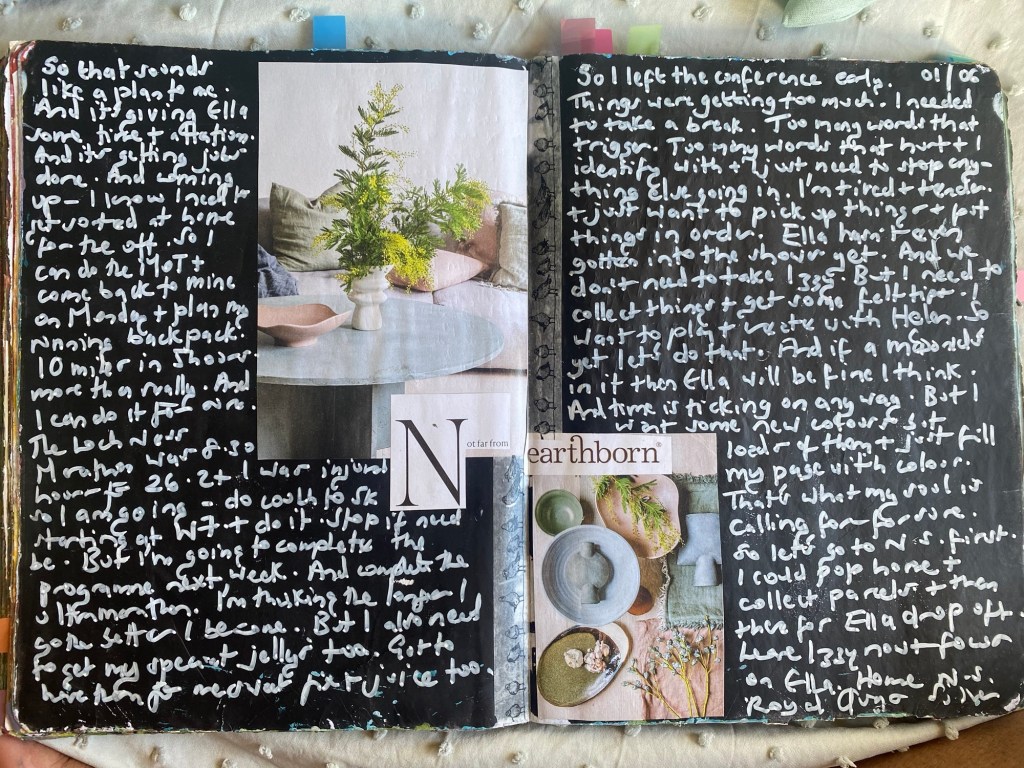 So that sounds
like a plan to me.
And it's giving Ella
some time + attention.
And it's getting jobs
done. And coming
up - I know I need to
get sorted at home
for the off. So I
can do the MOT +
come back to mine
on Monday + plan my
running backpack.
10 miles in 5 hours.
more than really. And
I can do it for sure.
The Loch Ness
Marathon was 8.50
hours for 26.2 + I was injured
so I am going - do couch to 5k
starting at W7 + do it. Stop if need
be. But I'm going to complete the
programme next week. And complete the
I'm thinking the longer I
go the better I become. But I also need
to get my spear + jellys too. Got to
have them for med vest fruit juice too.
N
ot far from
earthborn®
So I left the conference early. 01/06
Things were getting too much. I needed
to take a break. Too many words that
trigger. Too many words that hurt + I
identify with + I just need to stop any-
thing else going in. I'm tired + tender.
+ just want to pick up things + put
things in order. Ella hasn't even
gotten into the shower yet. And we
don't need to take 1335 But I need to
collect things + get some felt tips. I
want to play + create with Helen. So
yet let's do that. And if a mcdonalds
in it then Ella will be fine I think.
And time is ticking on any way. But I
want some new colours. Get
loads of them + just fill
my page with colour.
That's what my soul is
calling for for sure.
So let's go to N.S. first.
I could pop home +
collect parcels + then
there for Ella drop off.
here 1334 now + focus
on Ella. Home. N.S.
Royal Quays